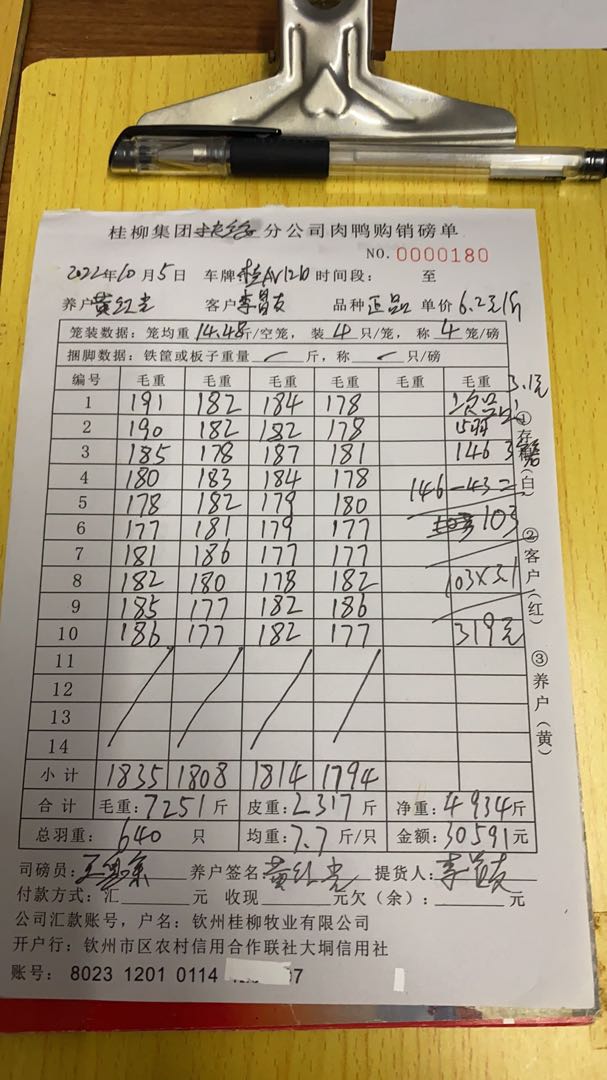 桂柳集团 分公司肉鸭购销磅单
NO. 0000180
2022年10月5日 车牌:桂AV120 时间段: 至
养户黄红光 客户李昌友 品种正品 单价6.2元/斤
笼装数据: 笼均重14.48斤/空笼, 装4只/笼, 称4笼/磅
捆脚数据: 铁筐或板子重量 斤, 称 只/磅
3.1元
编号 毛重 毛重 毛重 毛重 毛重 毛重
1 191 182 184 178 次品
2 190 182 182 178
3 185 178 187 181 146
4 180 183 184 178 146-43=
5 178 182 179 180
6 177 181 179 177 103
7 181 186 177 177
8 182 180 178 182 103×3.1
9 185 177 182 186
10 186 177 182 177 319元
11
12
13
14
小计 1835 1808 1814 1794
合计 毛重:7251斤 皮重:2317斤 净重:4934斤
总羽重: 640 只 均重:7.7斤/只 金额:30591元
司磅员: 养户签名:黄红光 提货人:李昌友
付款方式:汇 元 收现 元欠(余): 元
公司汇款账号,户名: 钦州桂柳牧业有限公司
开户行: 钦州市区农村信用合作联社大垌信用社
账号: 8023 1201 0114 67
①存根(白)
②客户(红)
③养户(黄)